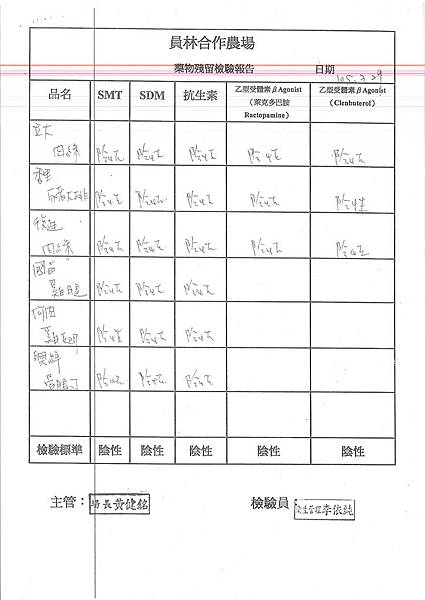 員林合作農場
藥物殘留檢驗報告 日期
105.3.29
品名 SMT SDM 抗生素 乙型受體素βAgonist（萊克多巴胺 Ractopamine） 乙型受體素βAgonist（Clenbuterol）
立大
肉絲 陰性 陰性 陰性 陰性 陰性
香里
陰性 陰性 陰性 陰性 陰性
復進
肉絲 陰性 陰性 陰性 陰性 陰性
國苗
陰性 陰性 陰性
陰性 陰性 陰性
陰性 陰性 陰性
檢驗標準 陰性 陰性 陰性 陰性 陰性
主管：場長黃健銘 檢驗員：衛生管理李依純